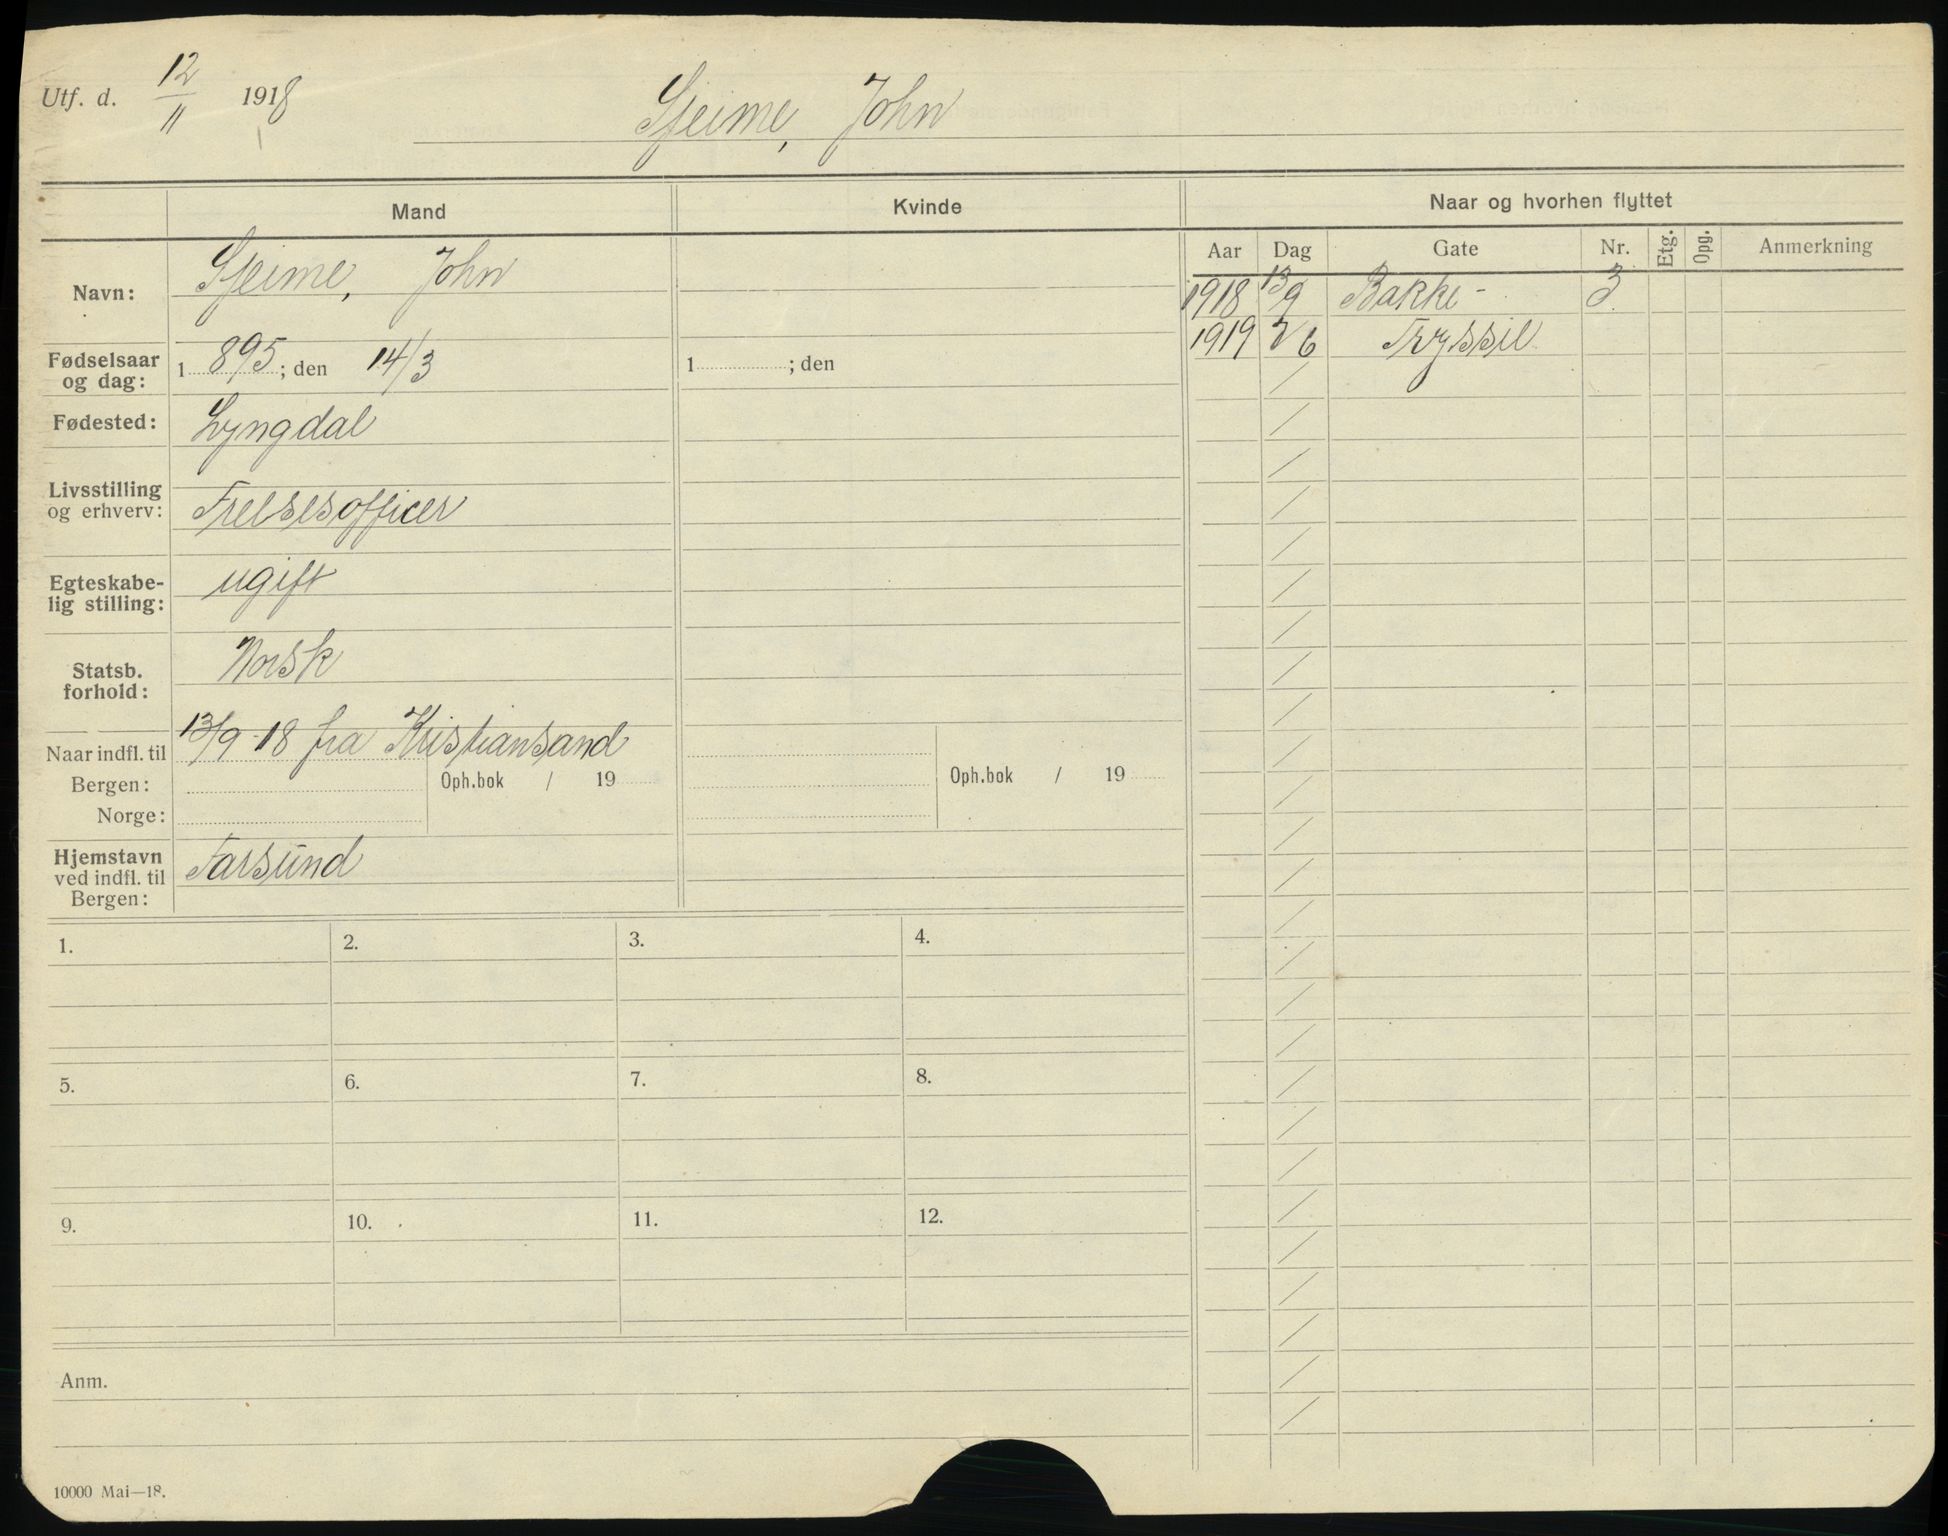 Utf. d. 12/11 1918
Sjeime, John
Mand
Kvinde
Naar og hvorhen flyttet
Aar Dag Gate Nr. Etg. Opg. Anmerkning
Navn: Sjeime, John
1918 13/9 Bakke- 3
1919 2/6 Tryssil
Fødselsaar og dag: 1895; den 14/3
1 ; den
Fødested: Lyngdal
Livsstilling og erhverv: Frelsesofficer
Egteskabe-
lig stilling: ugift
Statsb.
forhold: Norsk
Naar indfl. til 13/9 18 fra Kristiansand
Bergen: Oph.bok / 19 Oph.bok / 19
Norge:
Hjemstavn
ved indfl. til Farsund
Bergen:
1. 2. 3. 4.
5. 6. 7. 8.
9. 10. 11. 12.
Anm.
10000 Mai—18.